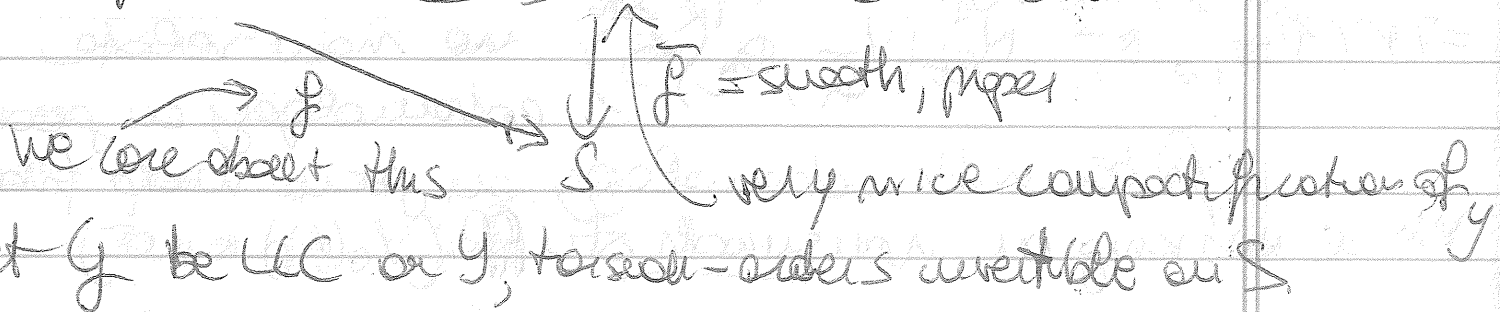 f̄ = smooth, proper
f
we care about this S very nice compactification of y
t G be LCC on Y, torsion-orders invertible on S